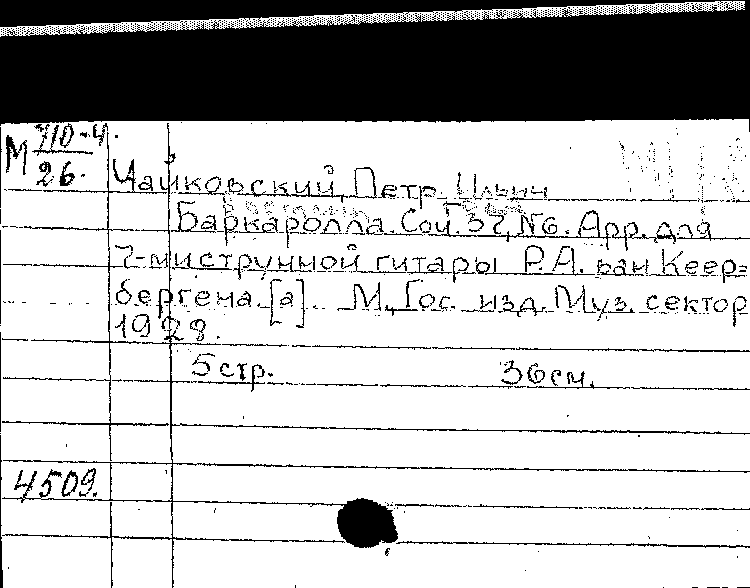 М 710-4.
26.
Чайковский, Петр Ильич
Баркаролла. Соч. 37, №6. Арр. для
7-миструнной гитары Р.А. ван Кеер=
бергена. [а]. М., Гос. изд. Муз. сектор
1928.
5 стр. 36 см.
4509.